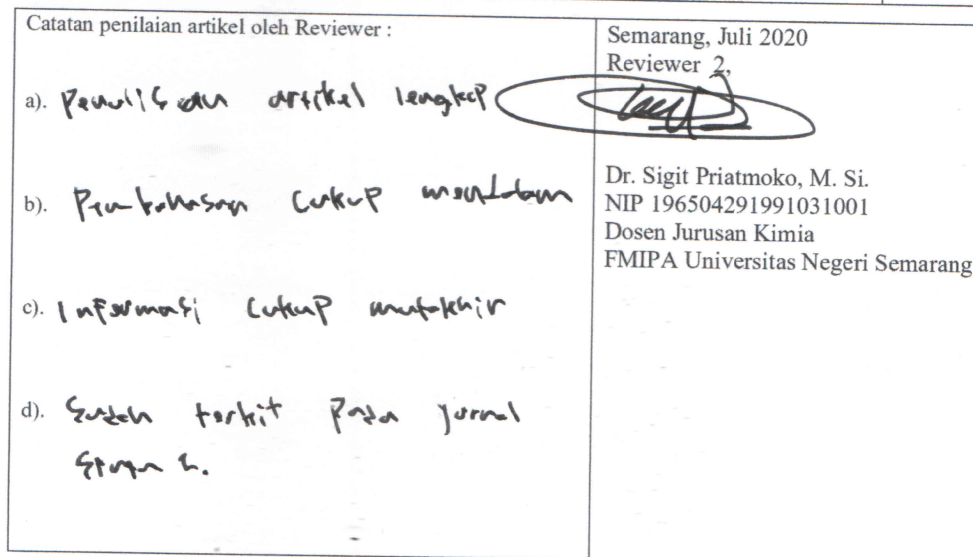 Catatan penilaian artikel oleh Reviewer :
a). Penulisan artikel lengkap
b). Pembahasan cukup mendalam
c). Informasi cukup mutakhir
d). Sudah terbit pada jurnal
Semarang, Juli 2020
Reviewer 2,
Dr. Sigit Priatmoko, M. Si.
NIP 196504291991031001
Dosen Jurusan Kimia
FMIPA Universitas Negeri Semarang